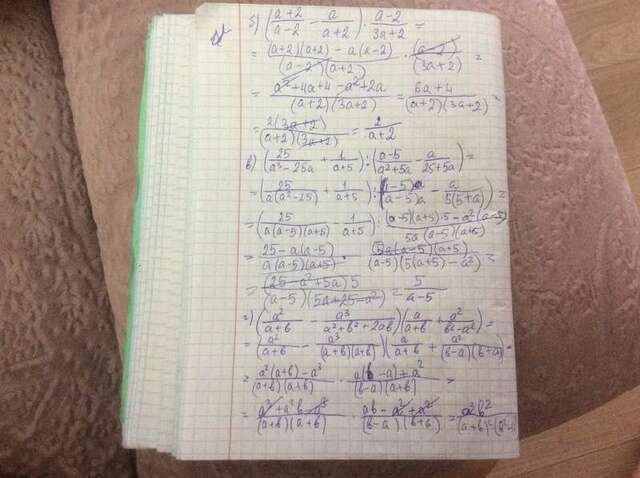 б) ((a+2)/(a-2) - a/(a+2)) · (a-2)/(3a+2) =
= ((a+2)(a+2) - a(a-2))/((a-2)(a+2)) · (a-2)/(3a+2) =
= (a²+4a+4-a²+2a)/((a+2)(3a+2)) = (6a+4)/((a+2)(3a+2)) =
= 2(3a+2)/((a+2)(3a+2)) = 2/(a+2)
в) (25/(a³-25a) + 1/(a+5)) : ((a-5)/(a²+5a) - a/(25+5a)) =
= (25/(a(a²-25)) + 1/(a+5)) : ((a-5)a/((a-5)a) - a/(5(5+a))) =
= (25/(a(a-5)(a+5)) - 1/(a+5)) · ((a-5)(a+5)·5 - a²(a-5))/(5a(a-5)(a+5))
= (25-a(a-5))/(a(a-5)(a+5)) · (5a(a-5)(a+5))/((a-5)(5(a+5)-a²)) =
= (25-a²+5a)5/((a-5)(5a+25-a²)) = 5/(a-5)
г) (a²/(a+b) - a³/(a²+b²+2ab)) (a/(a+b) + a²/(b²-a²)) =
= (a²/(a+b) - a³/((a+b)(a+b))) (a/(a+b) + a²/((b-a)(b+a))) =
= (a²(a+b)-a³)/((a+b)(a+b)) · (a(b-a)+a²)/((b-a)(a+b)) =
= (a³+a²b-a³)/((a+b)(a+b)) (ab-a²+a²)/((b-a)(b+a)) = a³b²/